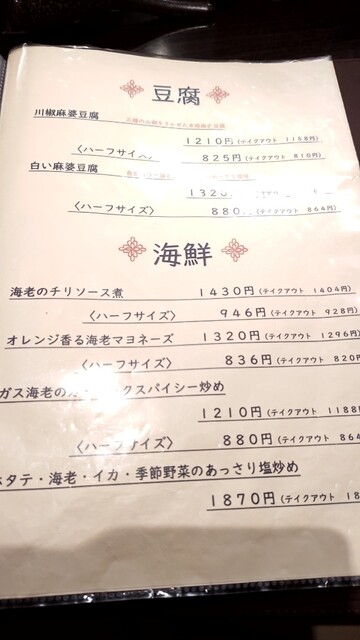 豆腐
川椒麻婆豆腐
1210円(テイクアウト 1188円)
〈ハーフサイ 825円(テイクアウト 810円)
白い麻婆豆腐
1320
〈ハーフサイズ〉 880 864円)
海鮮
海老のチリソース煮 1430円(テイクアウト 1404円)
〈ハーフサイズ〉 946円(テイクアウト 928円)
オレンジ香る海老マヨネーズ 1320円(テイクアウト 1296円)
〈ハーフサイズ〉 836円(テイクアウト 820円
ガス海老の スパイシー炒め
1210円(テイクアウト 1188
〈ハーフサイズ〉 880円(テイクアウト 864
ホタテ・海老・イカ・季節野菜のあっさり塩炒め
1870円(テイクアウト 18